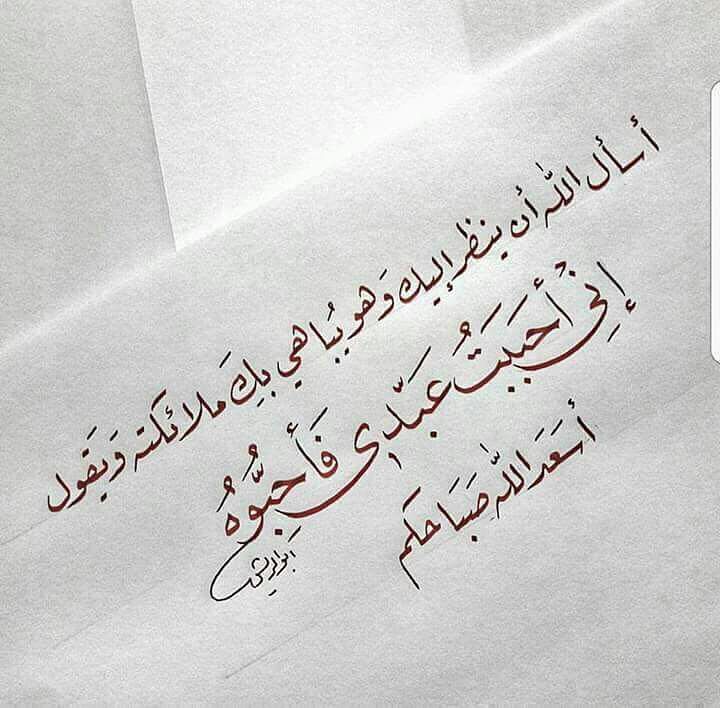 أسأل الله أن ينظر إليك وَهو يُباهي بِكَ ملائكته وَيَقول
إنِّي أحبَبتُ عَبدي فَأحِبُّوهُ
أسعَدَ اللهُ صَبَاحَكم